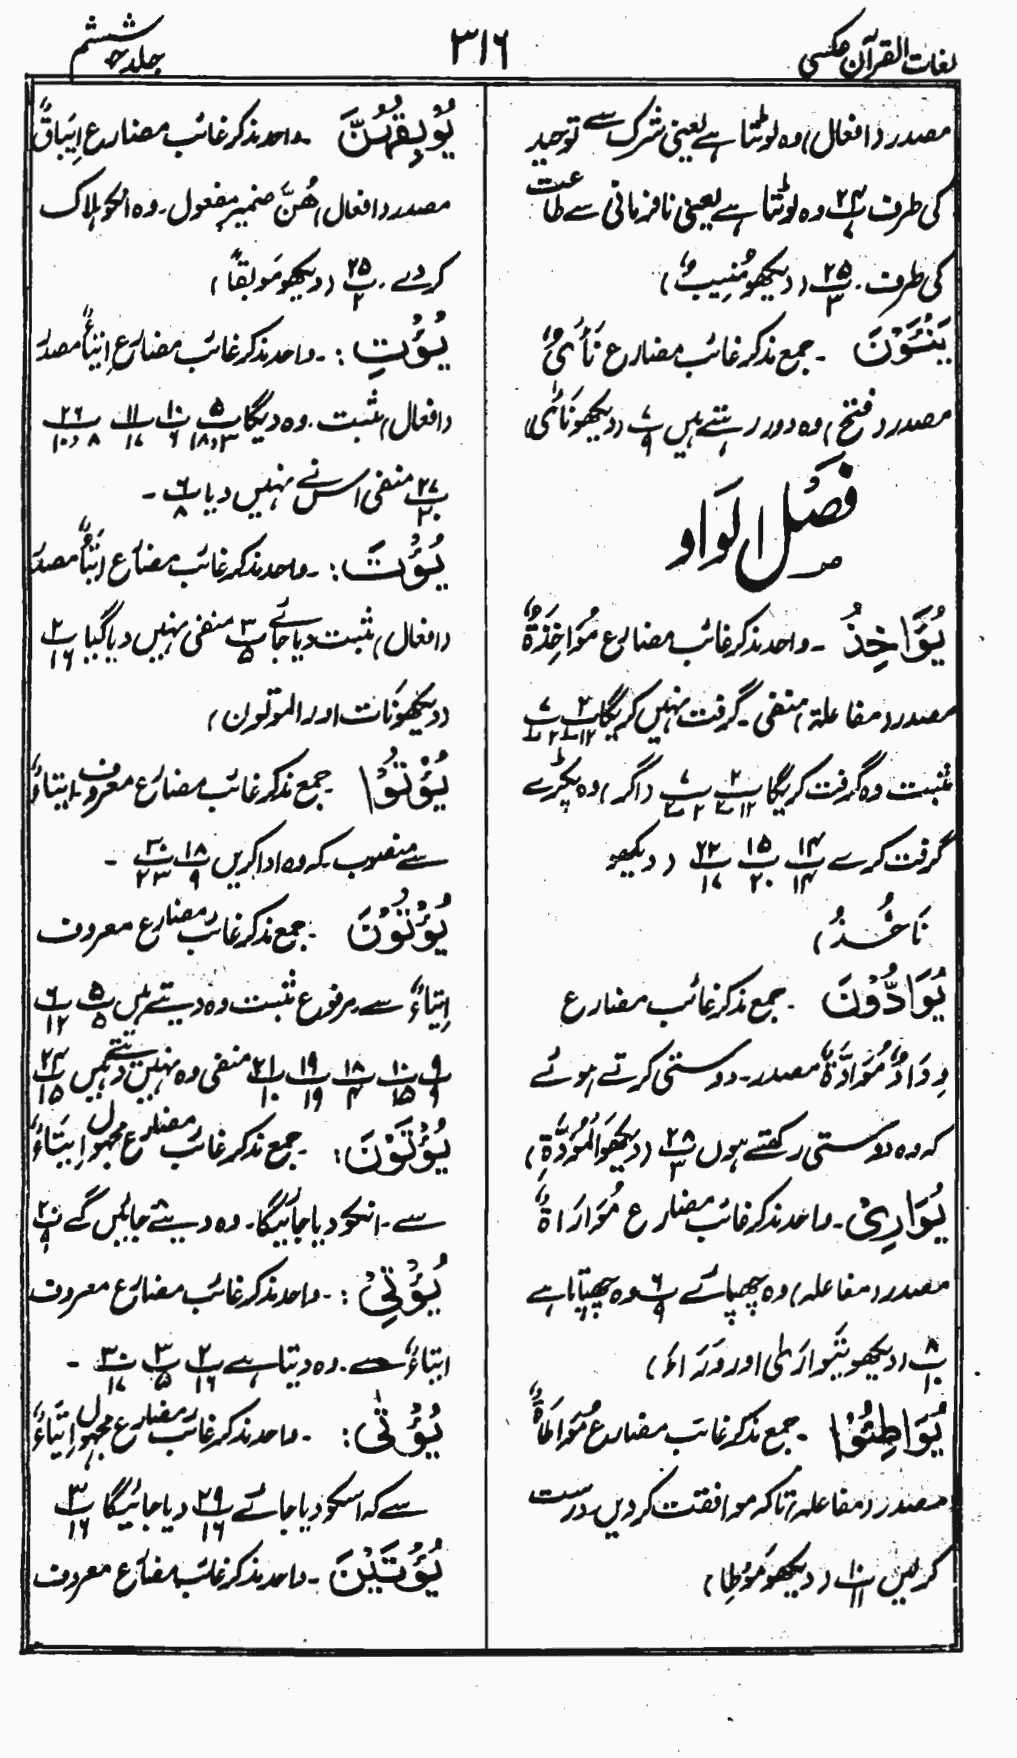 لغات القرآن عکسی
۳۱۶
جلد ششم
مصدر (افعال) وہ لوٹتا ہے یعنی شرک سے توحید
کی طرف پ۲۴ وہ لوٹتا ہے یعنی نافرمانی سے طاعت
کی طرف۔ پ۲۵/۳ (دیکھو مُنِیبٌ)
یَنْئَوْنَ ۔ جمع مذکر غائب مضارع نَأْیٌ
مصدر (فتح) وہ دور رہتے ہیں پ۷/۹ (دیکھو نَأٰی)
فصل الواو
یُؤَاخِذُ ۔ واحد مذکر غائب مضارع مُؤَاخَذَۃٌ
مصدر (مفاعلۃ) منفی۔ گرفت نہیں کریگا پ۲/۱۲ پ۷/۲
مثبت وہ گرفت کریگا پ۲/۱۲ پ۷/۲ (اگر) وہ پکڑے
گرفت کرے پ۱۴/۱۴ پ۱۵/۲۰ پ۲۲/۱۷ (دیکھو
نَأْخُذُ)
یُوَادُّوْنَ ۔ جمع مذکر غائب مضارع
وِدَادٌ مُوَادَّۃٌ مصدر۔ دوستی کرتے ہوئے
کہ وہ دوستی رکھتے ہوں پ۲۸/۳ (دیکھو اَلْمَوَدَّۃِ)
یُوَارِیْ ۔ واحد مذکر غائب مضارع مُوَارَاۃٌ
مصدر (مفاعلہ) وہ چھپائے پ۶/۹ وہ چھپاتا ہے
پ۸/۱۰ (دیکھو تُوَارٰی اور وَرَاءُ)
یُوَاطِئُوْا ۔ جمع مذکر غائب مضارع مُوَاطَأَۃٌ
مصدر (مفاعلہ) تاکہ موافقت کر دیں۔ درست
کرلیں پ۱۰/۱۱ (دیکھو مَوْطِئًا)
یُوْبِقْہُنَّ ۔ واحد مذکر غائب مضارع اِیْبَاقٌ
مصدر (افعال) ھُنَّ ضمیر مفعول۔ وہ انکو ہلاک
کر دے۔ پ۲۵/۲ (دیکھو مَوْبِقًا)
یُؤْتِ :۔ واحد مذکر غائب مضارع اِیْتَاءٌ مصدر
(افعال) مثبت۔ وہ دیگا پ۵/۱۸،۳ پ۱۰/۶ پ۱۱/۱۷ پ۲۶/۸،۱۰
پ۲۷/۲۰ منفی اس نے نہیں دیا پ۶/۸ ۔
یُؤْتَ :۔ واحد مذکر غائب مضارع اِیْتَاءٌ مصدر
(افعال) مثبت دیا جائے پ۳/۵ منفی نہیں دیا گیا پ۲/۱۶
(دیکھو نَاْت اور الموتون)
یُؤْتُوْا ۔ جمع مذکر غائب مضارع معروف۔ اِیْتَاءٌ
سے منصوب۔ کہ وہ ادا کریں پ۱۸/۹ پ۳۰/۲۳ ۔
یُؤْتُوْنَ ۔ جمع مذکر غائب مضارع معروف
اِیْتَاءٌ سے مرفوع مثبت وہ دیتے ہیں پ۵/۵ پ۶/۱۲
پ۹/۹ پ۱۰/۱۵ پ۱۸/۴ پ۱۹/۱۹ پ۲۱/۱۰ منفی وہ نہیں دیتے ہیں پ۲۴/۱۵
یُؤْتَوْنَ :۔ جمع مذکر غائب مضارع مجہول اِیْتَاءٌ
سے۔ انکو دیا جائیگا۔ وہ دیئے جائیں گے پ۲۰/۹
یُؤْتِیْ :۔ واحد مذکر غائب مضارع معروف
اِیْتَاءٌ سے۔ وہ دیتا ہے پ۲/۱۶ پ۳/۵ پ۳۰/۱۷ ۔
یُؤْتٰی :۔ واحد مذکر غائب مضارع مجہول اِیْتَاءٌ
سے کہ اسکو دیا جائے پ۲۹/۱۶ دیا جائیگا پ۳/۱۶
یُؤْتَیَنَّ ۔ واحد مذکر غائب مضارع معروف